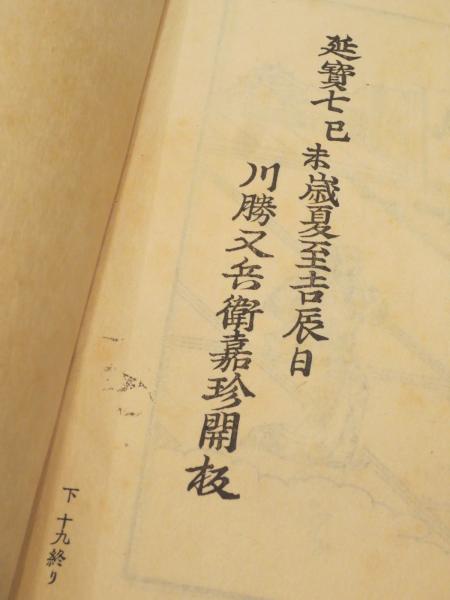 延寶七己未歳夏至吉辰日
川勝又兵衛嘉珍開板
下 十九終り